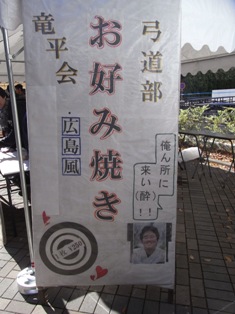 弓道部
お好み焼き
竜平会
広島風
俺ん所に
来い(酔)
!!
1枚 ¥250